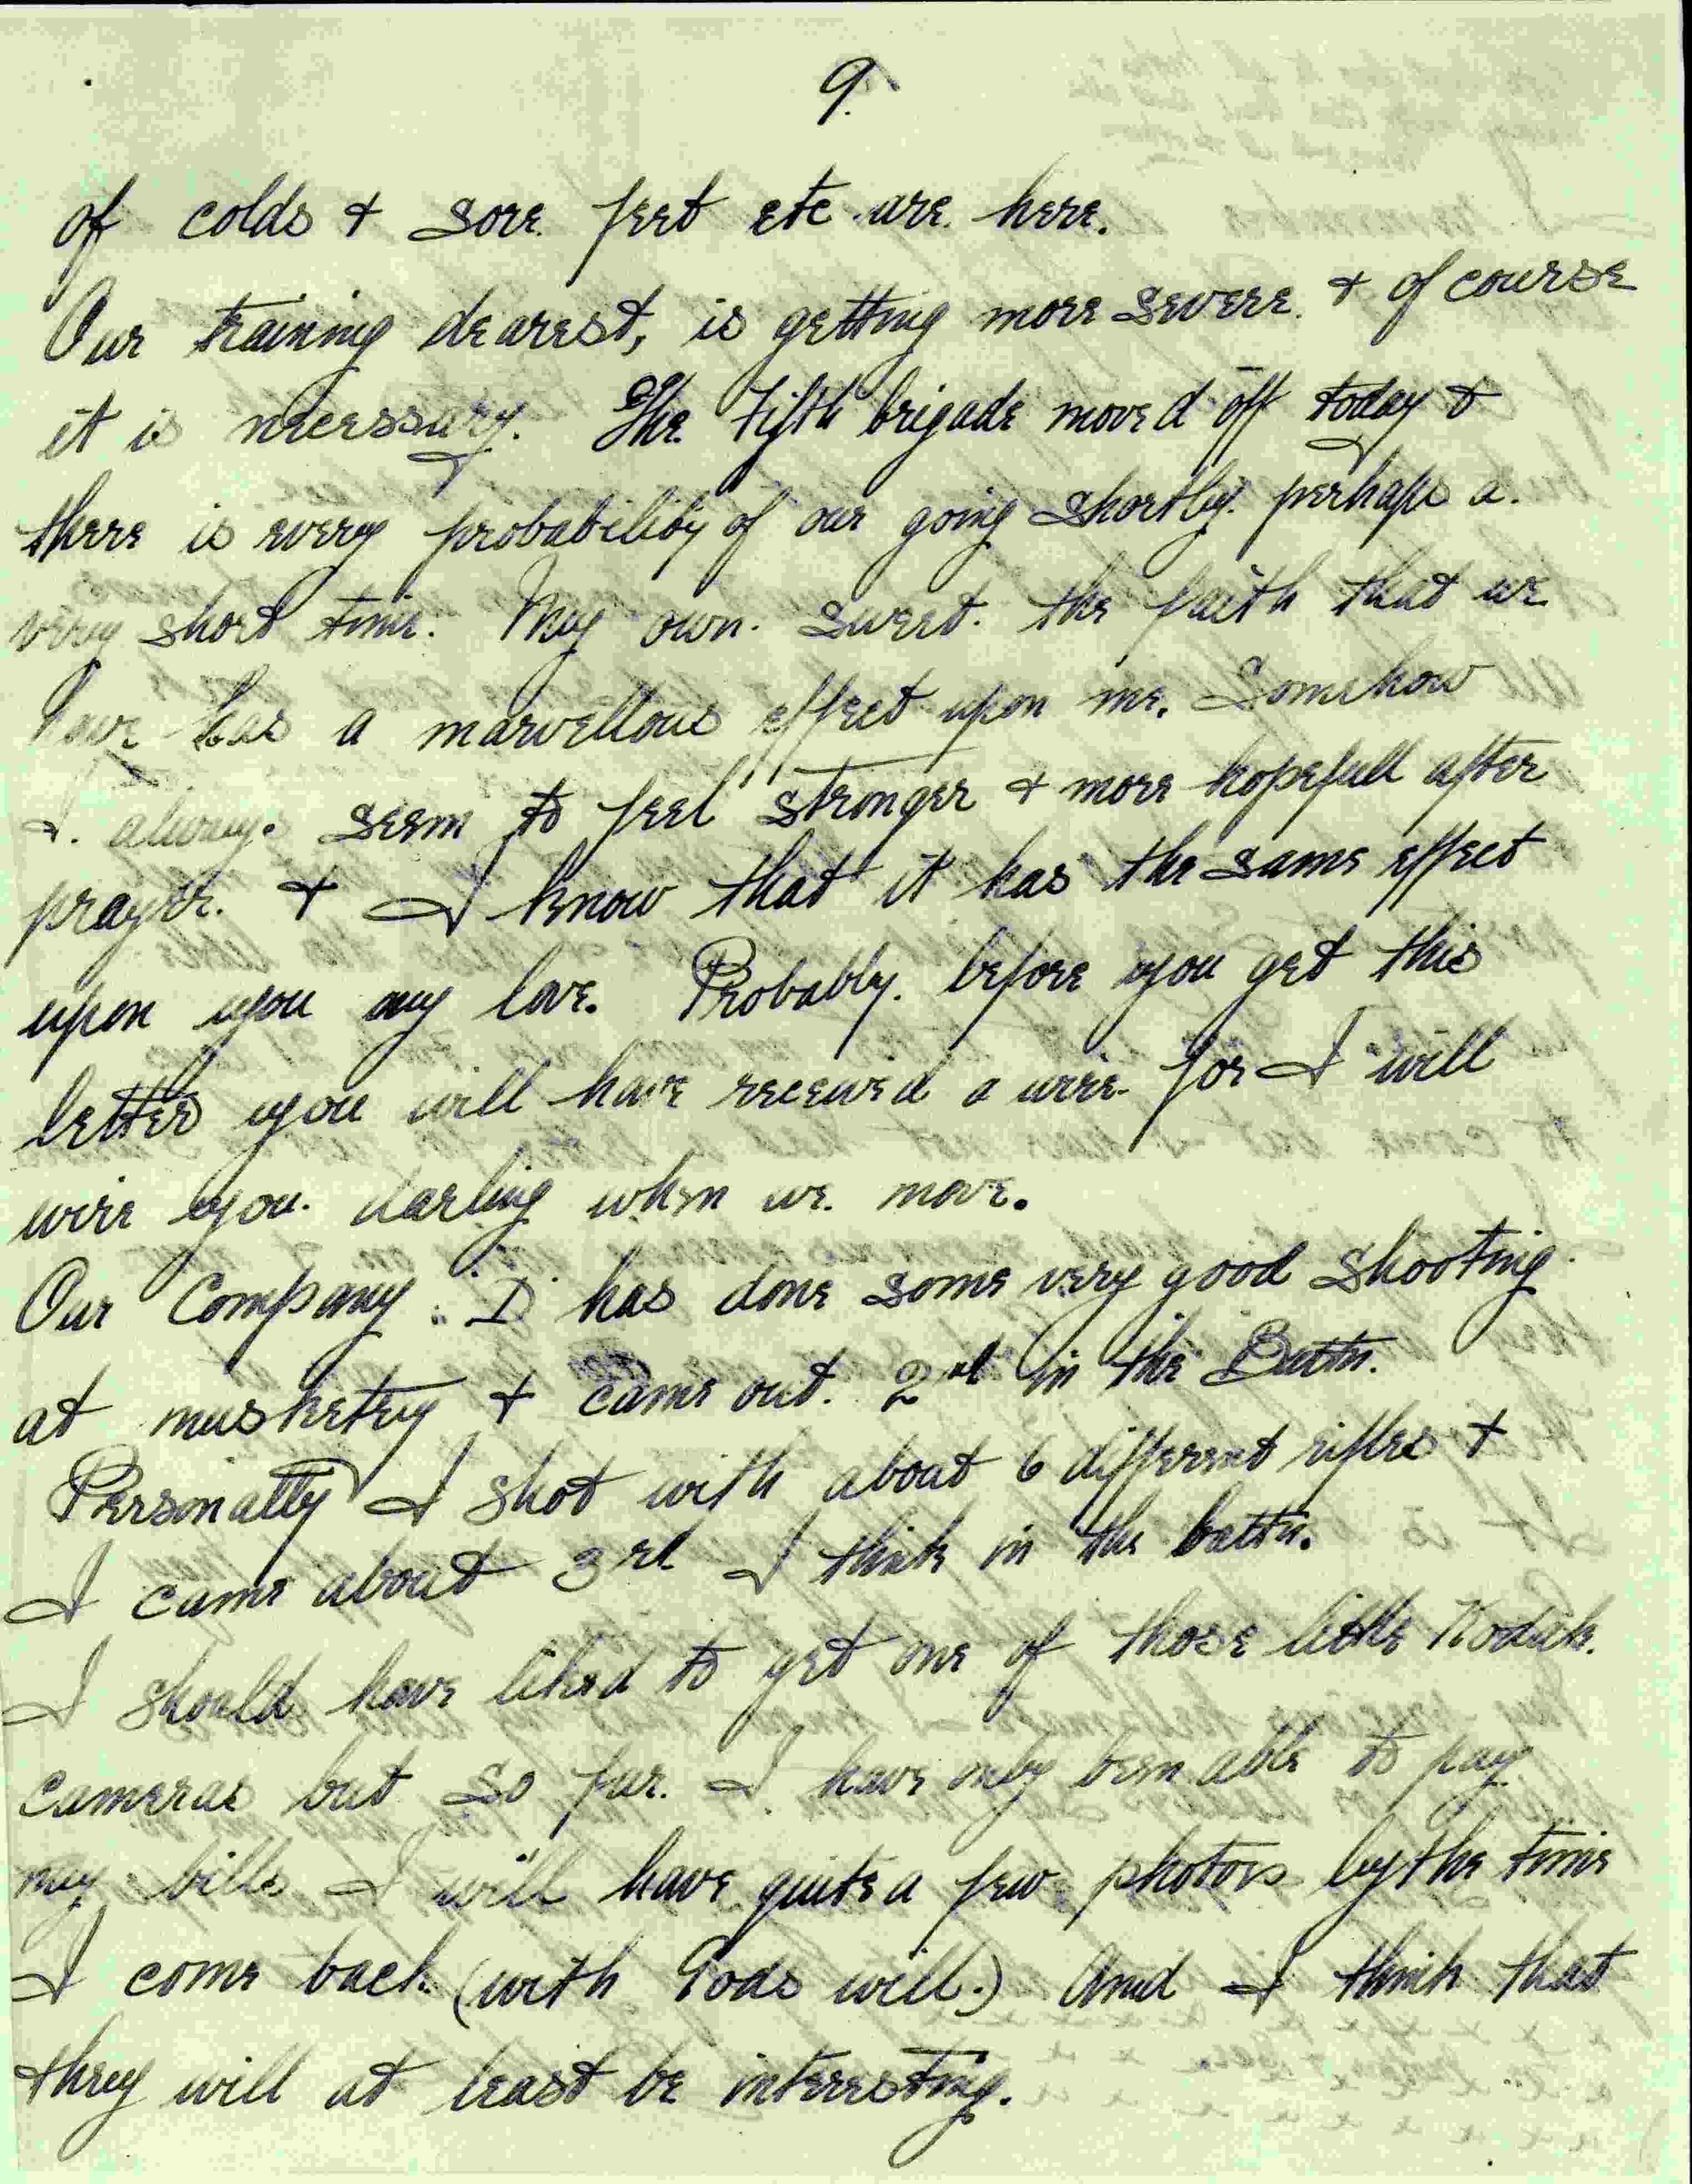 9.
of colds & sore feet etc are here.
Our training dearest, is getting more severe. & of course
it is necessary. The Fifth brigade moved off today &
there is every probability of our going shortly. perhaps a.
very short time. My own. sweet. the faith that we
have has a marvellous effect upon me. Somehow
I. always seem to feel stronger & more hopefull after
prayer. & I know that it has the same effect
upon you my love. Probably. before you get this
letter you will have received a wire. for I will
wire you. darling when we move.
Our Company "D" has done some very good shooting.
at musketry & came out. 2nd in the Battn.
Personally I shot with about 6 different rifles &
I came about 3rd I think in the battn.
I should have liked to get one of those little Kodak.
cameras but so far. I have only been able to pay
my bills I will have quite a few photos by the time
I come back (with Gods will.) And I think that
they will at least be interesting.